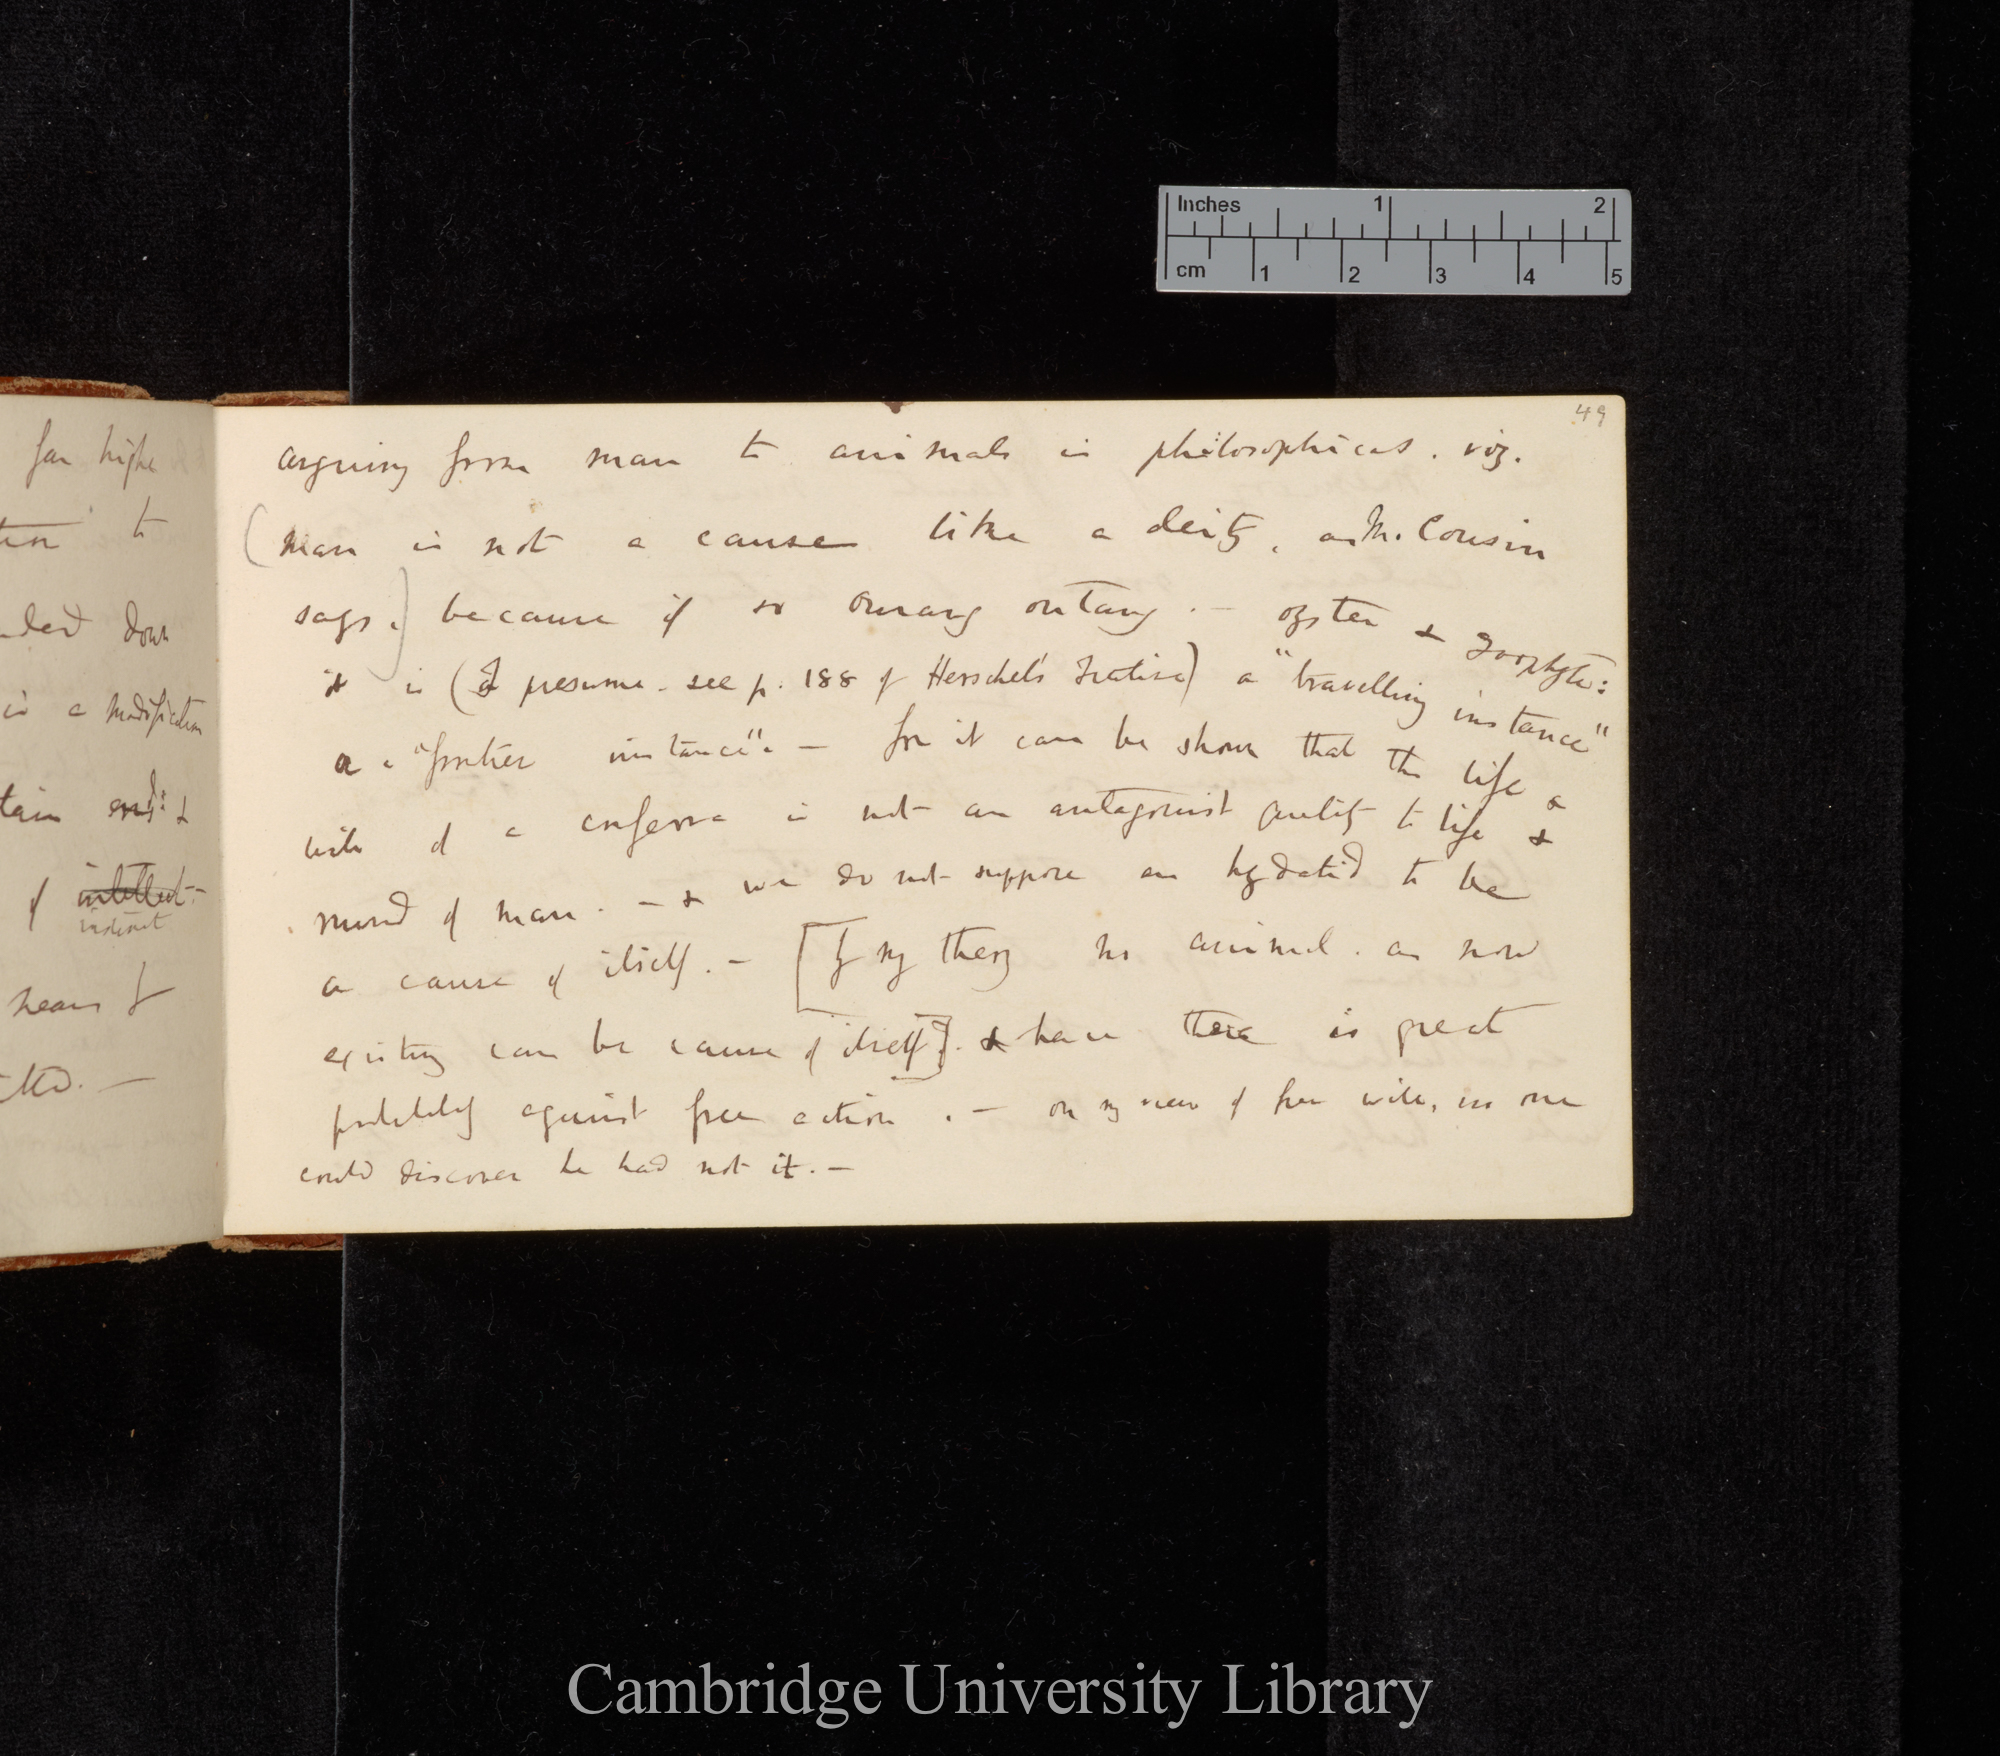 Inches 1 2
cm 1 2 3 4 5
49
arguing from man to animals is philosophical. viz.
(man is not a cause like a deity, as M. Cousin
says.) because if so ourang outang. — oyster & zoophyte:
it is (I presume — see p. 188 of Herschel's Treatise) a "travelling instance"
a — "frontier instance". — for it can be shown that the life &
will of a conferva is not an antagonist quality to life &
mind of man. — & we do not suppose an hydatid to be
a cause of itself. — [by my theory no animal. as now
existing can be cause of itself]. & hence there is great
probability against free action. — on my view of free will, no one
could discover he had not it. —
far higher
to
down
is a modification
tain end: &
of intellect —
instinct
means of
Cambridge University Library